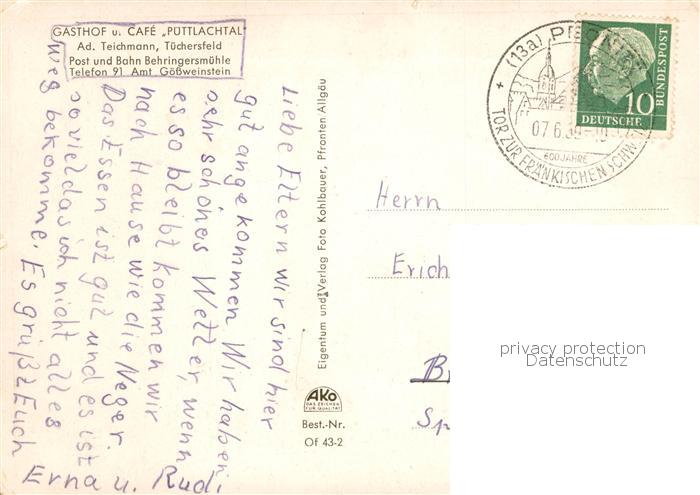 GASTHOF u. CAFÉ „PÜTTLACHTAL"
Ad. Teichmann, Tüchersfeld
Post und Bahn Behringersmühle
Telefon 91 Amt Gößweinstein
Liebe Eltern wir sind hier
gut angekommen. Wir haben
sehr schönes Wetter, wenn
es so bleibt kommen wir
nach Hause wie die Neger.
Das Essen ist gut und es ist
so viel das ich nicht alles
weg bekomme. Es grüßt Euch
Erna u. Rudi
Eigentum und Verlag Foto Kohlbauer, Pfronten Allgäu
AKO
DAS ZEICHEN
FÜR QUALITÄT
Best.-Nr.
Of 43-2
(13a)
07.6.
600 JAHRE
TOR ZUR FRÄNKISCHEN SCHW
10
DEUTSCHE
BUNDESPOST
Herrn
Erich
privacy protection
Datenschutz